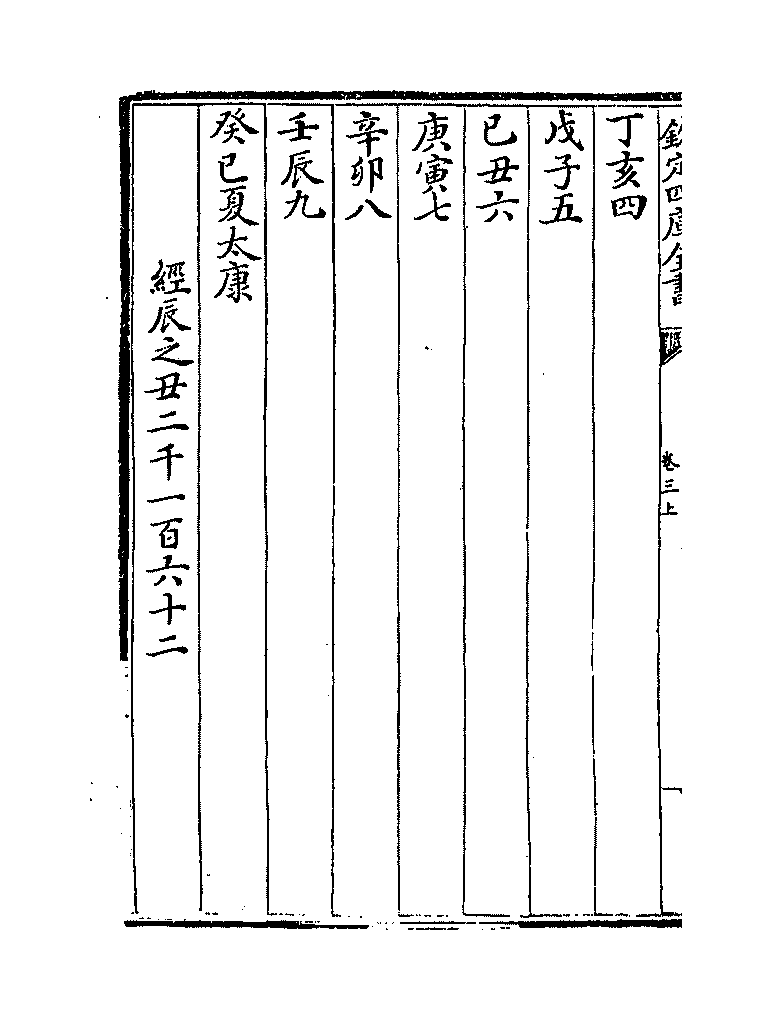 欽定四庫全書
卷三上
丁亥四
戊子五
已丑六
庚寅七
辛卯八
壬辰九
癸已夏太康
經辰之丑二千一百六十二